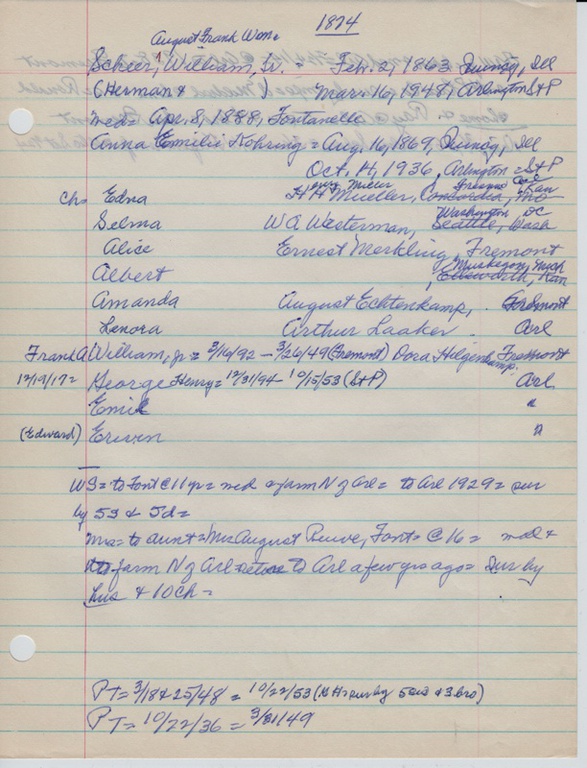 1874
August Frank Wm =
Scheer, William, Sr. = Feb. 2, 1863 Quincy, Ill
(Herman & ) Mar. 16, 1948, Arlington StP
med = Apr. 8, 1888, Fontanelle
Anna Emilie Kohring = Aug. 16, 1869, Quincy, Ill
Oct. 14, 1936, Arlington = StP
ch Edna H H Mueller, Concordia, Mo
Washington, DC
Selma W A Westerman, Seattle, Wash
Alice Ernest Merkling, Fremont
Muskegon, Mich
Albert Ellsworth, Kan
Amanda August Echtenkamp, Fremont
Lenora Arthur Laaker Arl
Frank A William, Jr = 3/16/92 – 3/26/49 (Fremont) Dora Helgenkamp, Fremont
12/19/17 = George Henry = 12/31/94 – 10/15/53 (StP) Arl
Emil "
(Edward) Erwin "
WS = to Font @ 11 yr = med & farm N of Arl = to Arl 1929 = sur
by 5S & 5d =
Mrs = to aunt = Mrs August Ruwe, Font = @ 16 = md &
to farm N of Arl to Arl a few yrs ago = Sur by
hus & 10 Ch =
PT = 3/18 & 25/48 = 10/22/53 (G H sur by 5 sis & 3 bro)
PT = 10/22/36 = 3/31/49